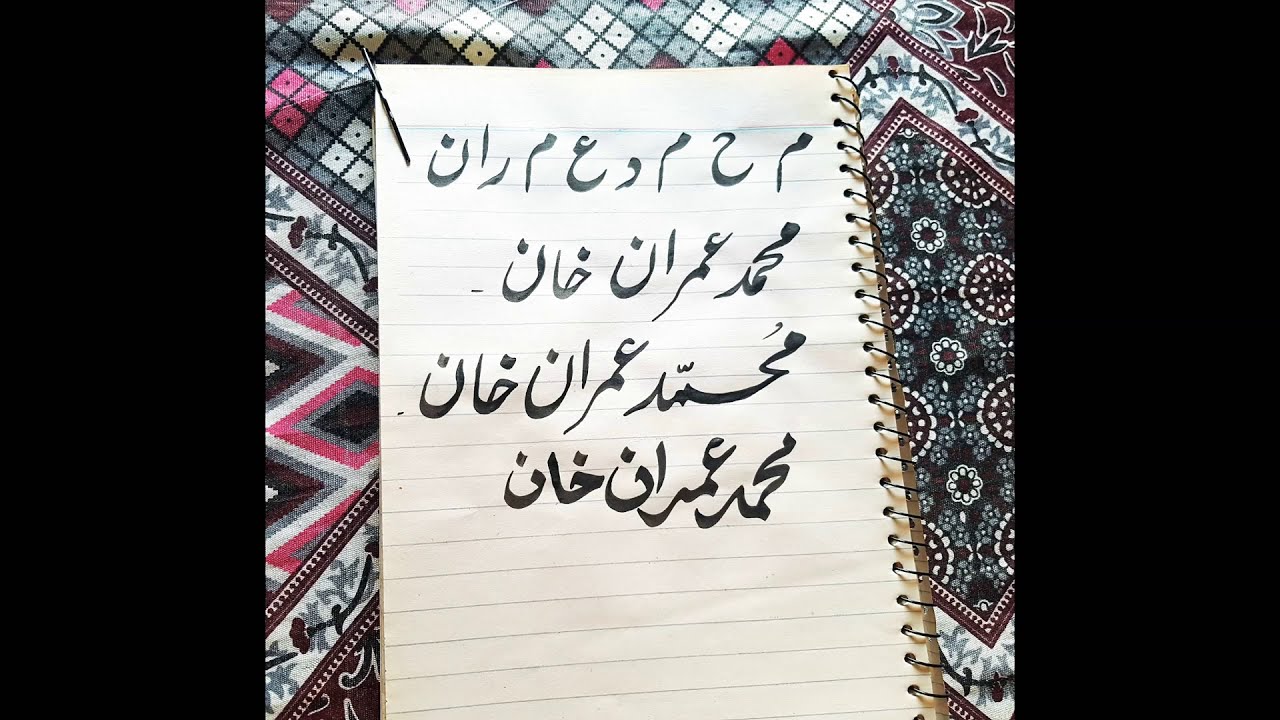 م ح م د ع م ران
محمد عمران خان۔
مُحمّد عمران خان۔
محمد عمران خان